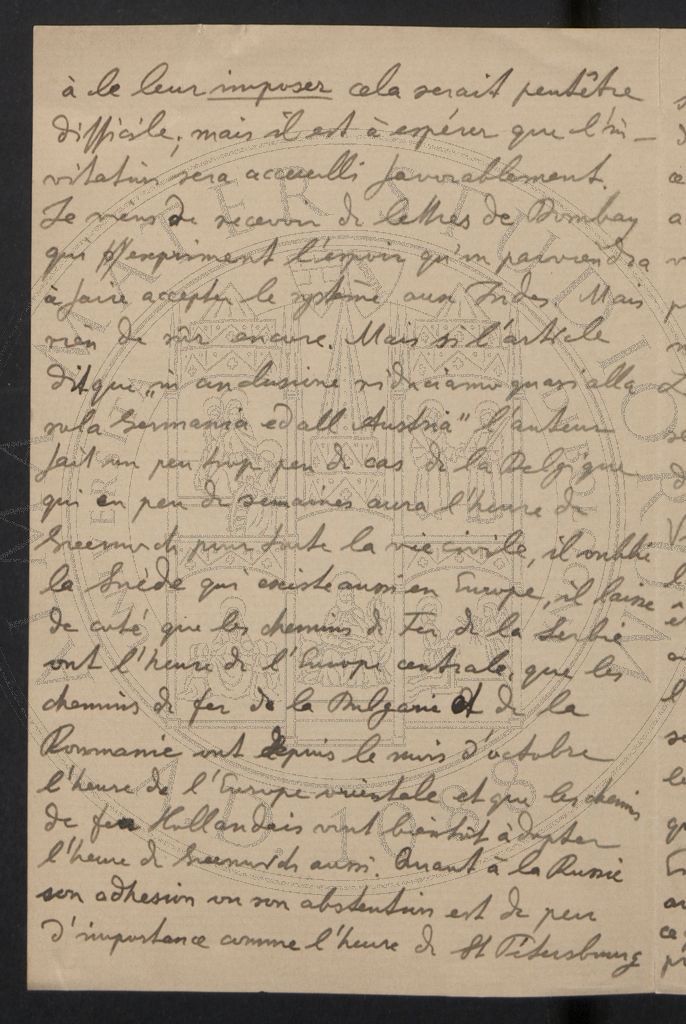 à le leur imposer cela serait peutêtre
difficile, mais il est à espérer que l'in-
vitation sera accueilli favorablement.
Je viens de recevoir de lettres de Bombay
qui expriment l'espoir qu'on parviendra
à faire accepter le système aux Indes. Mais
rien de sûr encore. Mais si l'article
dit que „in conclusione riduciamo quasi alla
sola Germania ed all Austria" l'auteur
fait un peu trop peu de cas de la Belgique
qui en peu de semaines aura l'heure de
Greenwich pour toute la vie civile, il oublie
la Suède qui existe aussi en Europe, il laisse
de coté que les chemins de Fer de la Serbie
ont l'heure de l'Europe centrale, que les
chemins de fer de la Bulgarie et de la
Roumanie ont depuis le mois d'octobre
l'heure de l'Europe orientale et que les chemins
de fer Hollandais vont bientôt adopter
l'heure de Greenwich aussi. Quant à la Russie
son adhesion ou son abstention est de peu
d'importance comme l'heure de St Pétersbourg